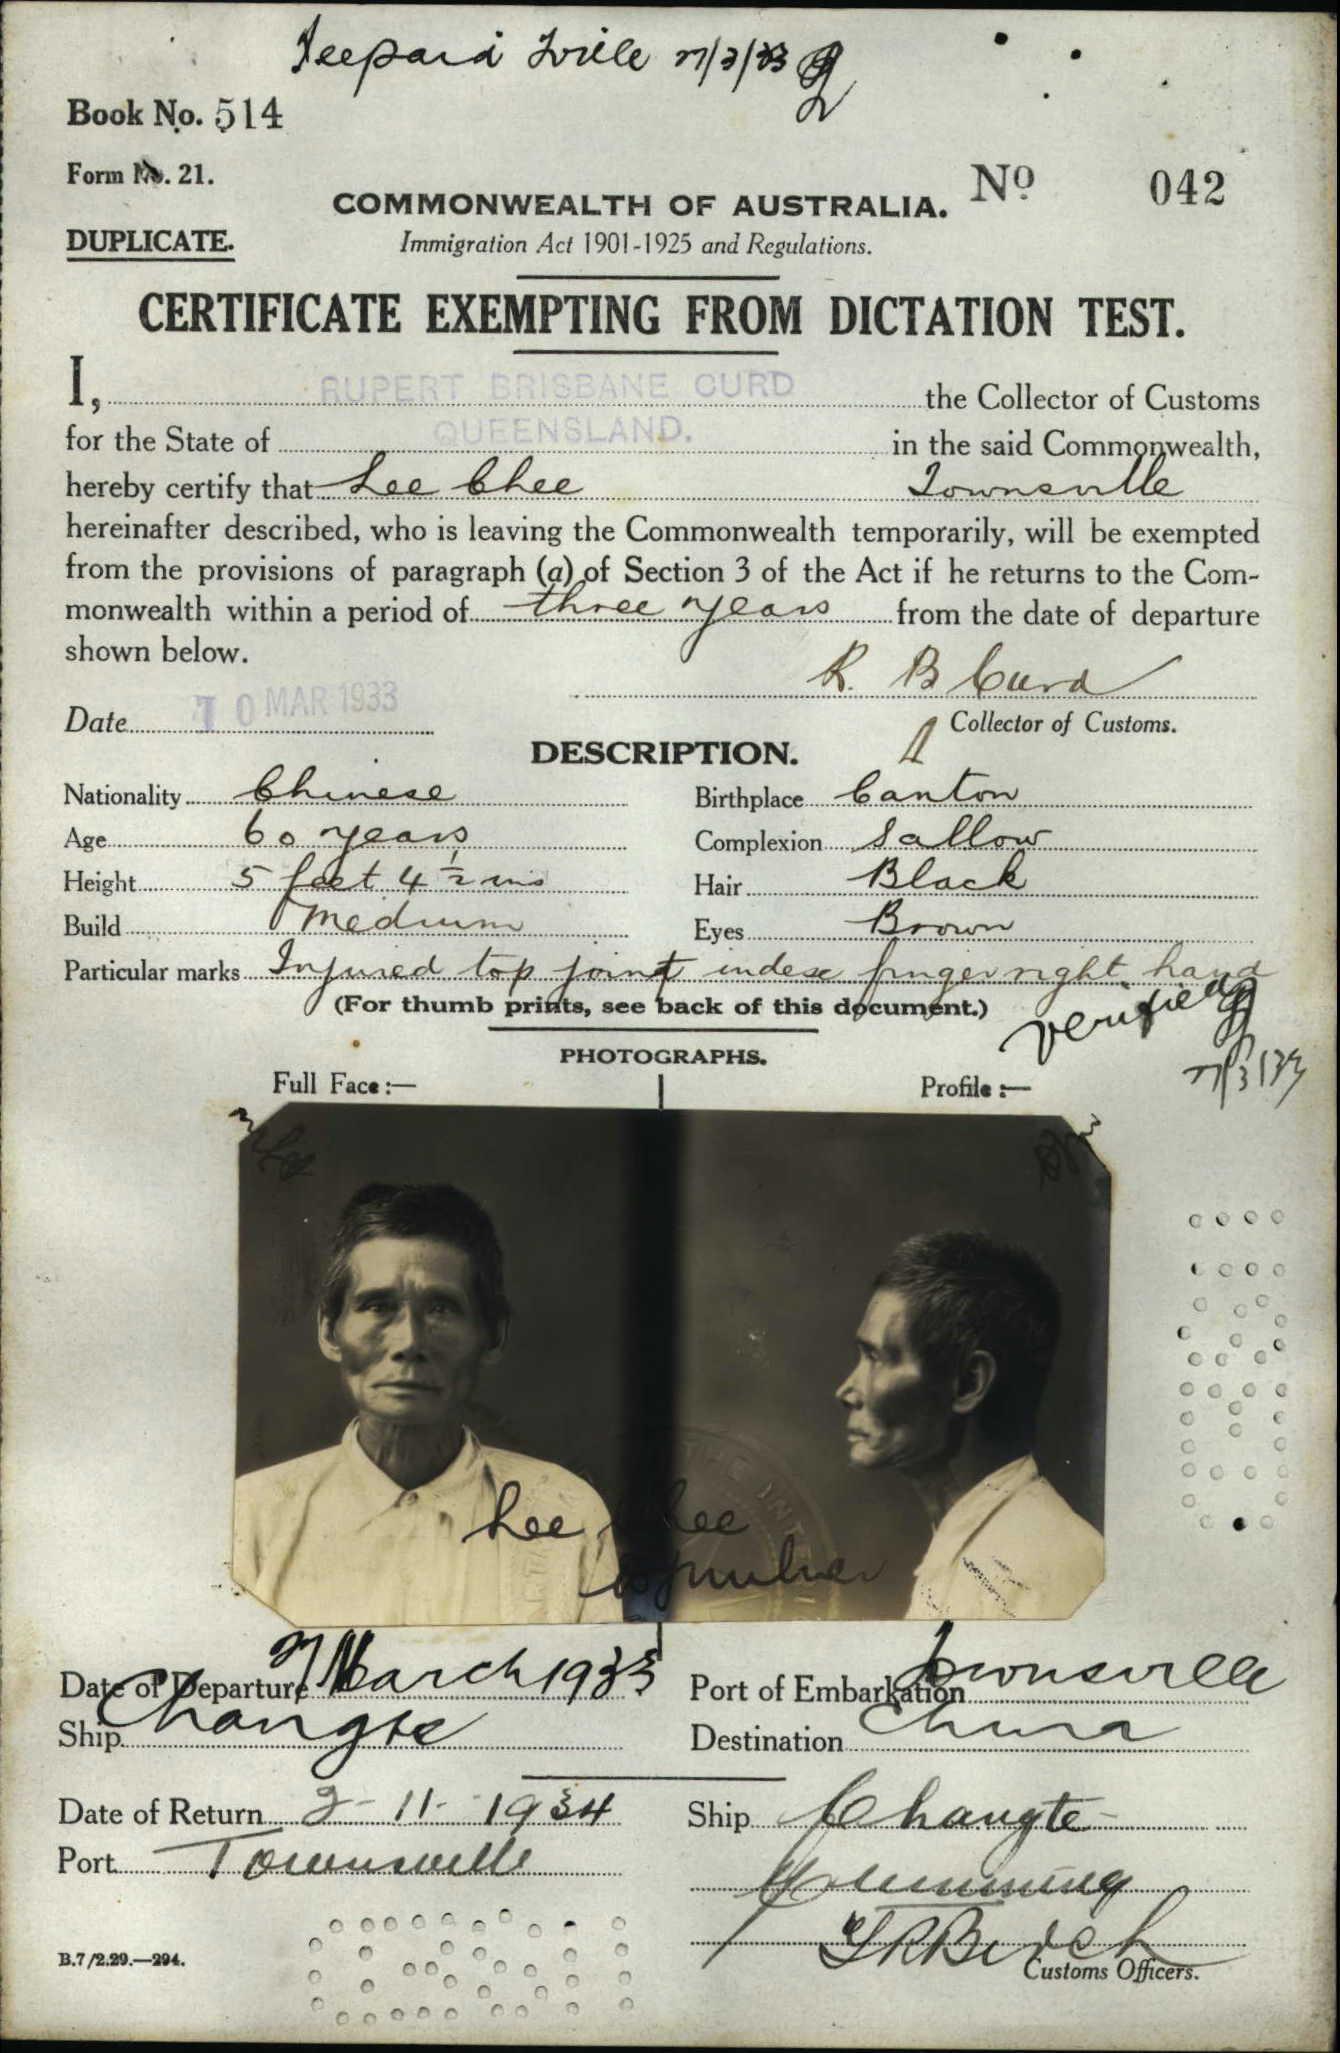 27/3/33
Book No. 514
Form No. 21.
COMMONWEALTH OF AUSTRALIA.
No 042
DUPLICATE.
Immigration Act 1901-1925 and Regulations.
CERTIFICATE EXEMPTING FROM DICTATION TEST.
I, RUPERT BRISBANE CURD the Collector of Customs
for the State of QUEENSLAND. in the said Commonwealth,
hereby certify that Lee Chee Townsville
hereinafter described, who is leaving the Commonwealth temporarily, will be exempted
from the provisions of paragraph (a) of Section 3 of the Act if he returns to the Com-
monwealth within a period of three years from the date of departure
shown below.
R. B Curd
Date 10 MAR 1933
Collector of Customs.
DESCRIPTION.
Nationality Chinese Birthplace Canton
Age 60 years Complexion Sallow
Height 5 feet 4 1/2 ins Hair Black
Build Medium Eyes Brown
Particular marks Injured top joint index finger right hand
(For thumb prints, see back of this document.)
verified
27/3/33
PHOTOGRAPHS.
Full Face:— Profile:—
Lee Chee
Date of Departure 27 March 1933 Port of Embarkation Townsville
Ship Changte Destination China
Date of Return 2-11-1934 Ship Changte
Port Townsville
Customs Officers.
B.7/2.29.—294.